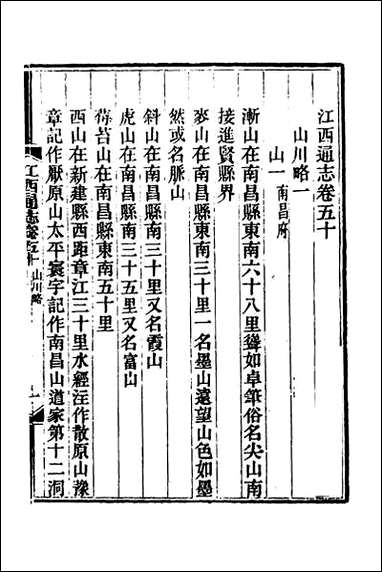 江西通志卷五十
山川略一
山一 南昌府
漸山在南昌縣東南六十八里聳如卓筆俗名尖山南
接進賢縣界
麥山在南昌縣東南三十里一名墨山遠望山色如墨
然或名脈山
斜山在南昌縣南三十里又名霞山
虎山在南昌縣南三十五里又名富山
莓苔山在南昌縣東南五十里
西山在新建縣西距章江三十里水經注作散原山豫
章記作厭原山太平寰宇記作南昌山道家第十二洞
江西通志 卷五十 山川略 一